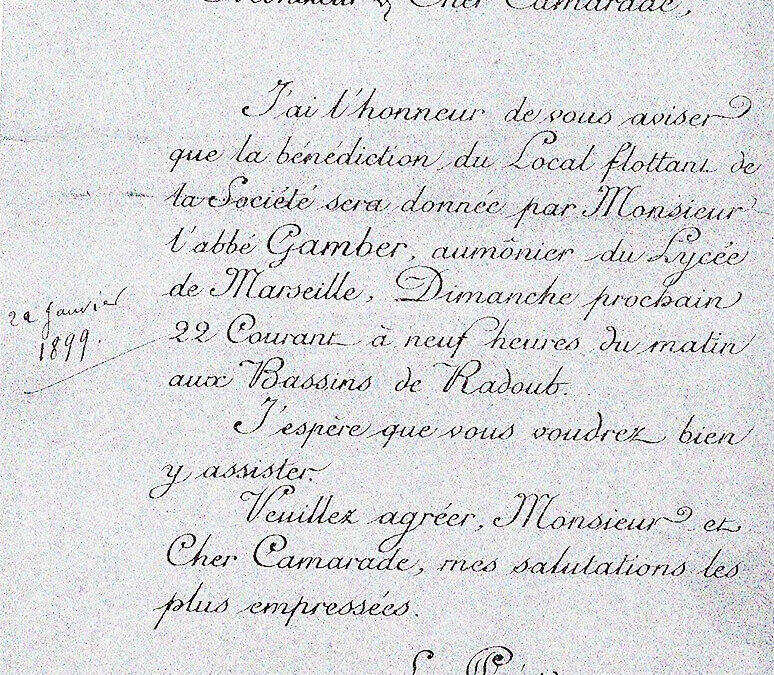 Monsieur & Cher Camarade,
J'ai l'honneur de vous aviser
que la bénédiction du Local flottant de
la Société sera donnée par Monsieur
l'abbé Gamber, aumônier du Lycée
de Marseille, Dimanche prochain
22 Courant à neuf heures du matin
aux Bassins de Radoub.
J'espère que vous voudrez bien
y assister.
Veuillez agréer, Monsieur et
Cher Camarade, mes salutations les
plus empressées.
22 Janvier
1899.